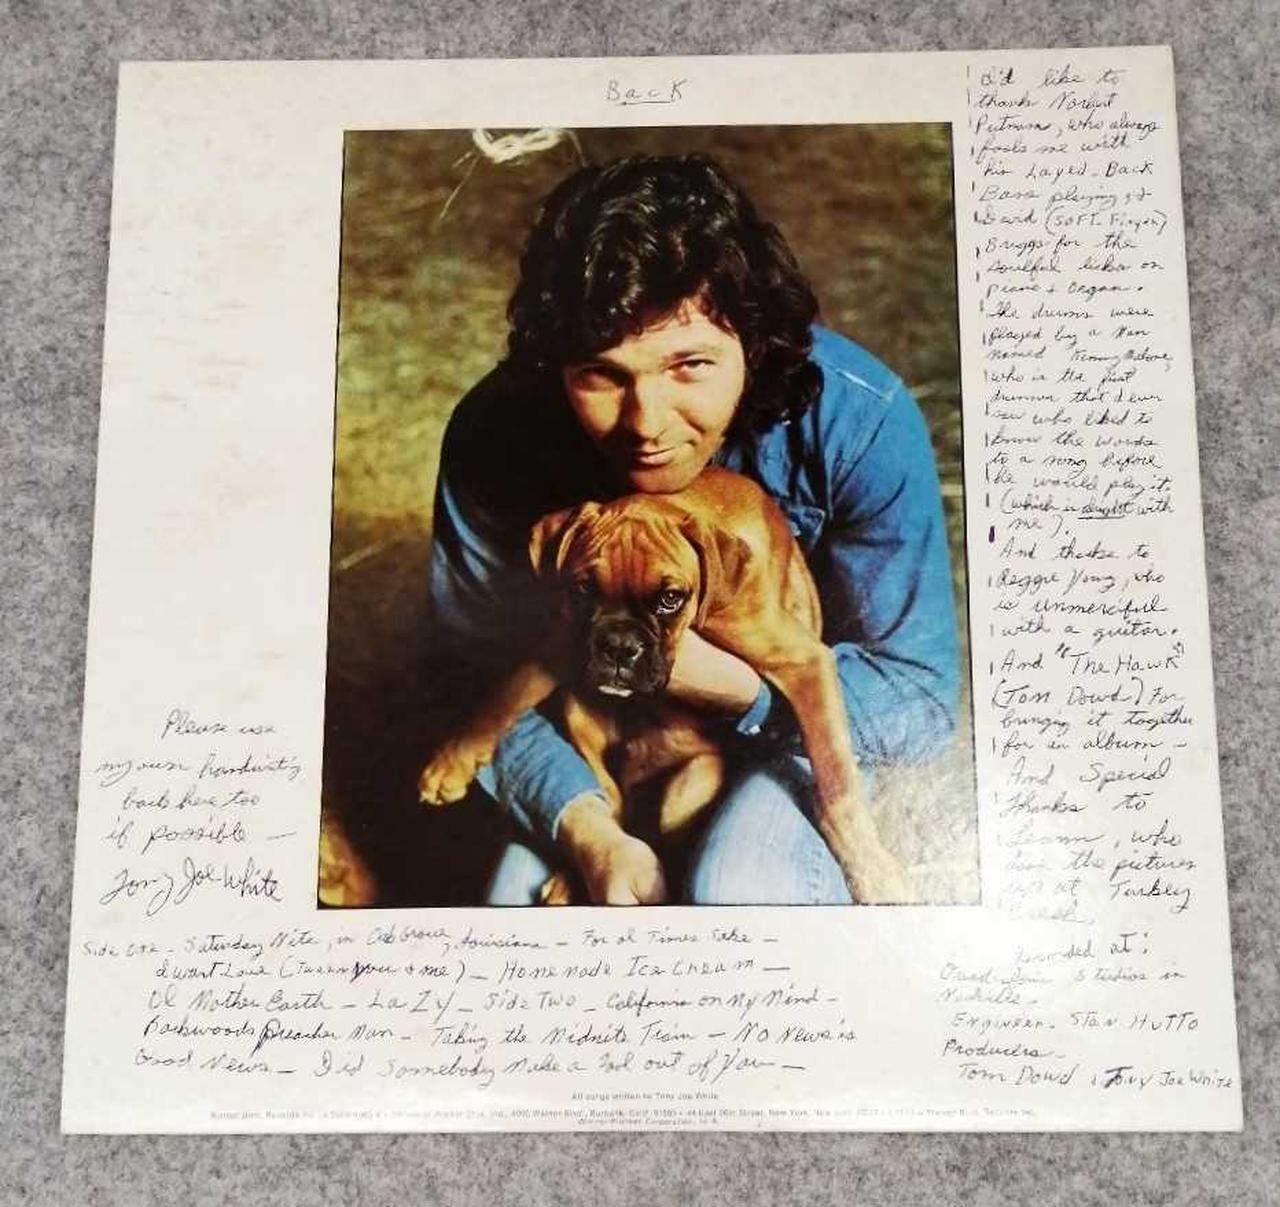 Back
I'd like to
thank Norbert
Putnam, who always
fools me with
his Layed-Back
Bass playing, &
David (Soft-Finger)
Briggs for the
soulful licks on
piano & organ.
The drums were
played by a man
named Kenny Malone,
who is the first
drummer that I ever
saw who liked to
know the words
to a song before
he would play it
(which is alright with
me).
And thanks to
Reggie Young, who
is unmerciful
with a guitar.
And "The Hawk"
(Tom Dowd) For
bringing it together
for an album -
And Special
Thanks to
Leann, who
the pictures
at Turkey
Creek.
Please use
my own handwriting
back here too
if possible -
Tony Joe White
Side One - Saturday Nite, in Oak Grove, Louisiana - For Ol Times Sake -
I Want Love (Tween You & me) - Homemade Ice Cream -
Ol Mother Earth - Lazy - Side Two - California on My Mind -
Backwoods Preacher Man - Taking the Midnite Train - No News is
Good News - Did Somebody Make a Fool out of You -
Recorded at:
Quadrafonic Studios in
Nashville -
Engineer - Stan Hutto
Producers -
Tom Dowd & Tony Joe White
All songs written by Tony Joe White